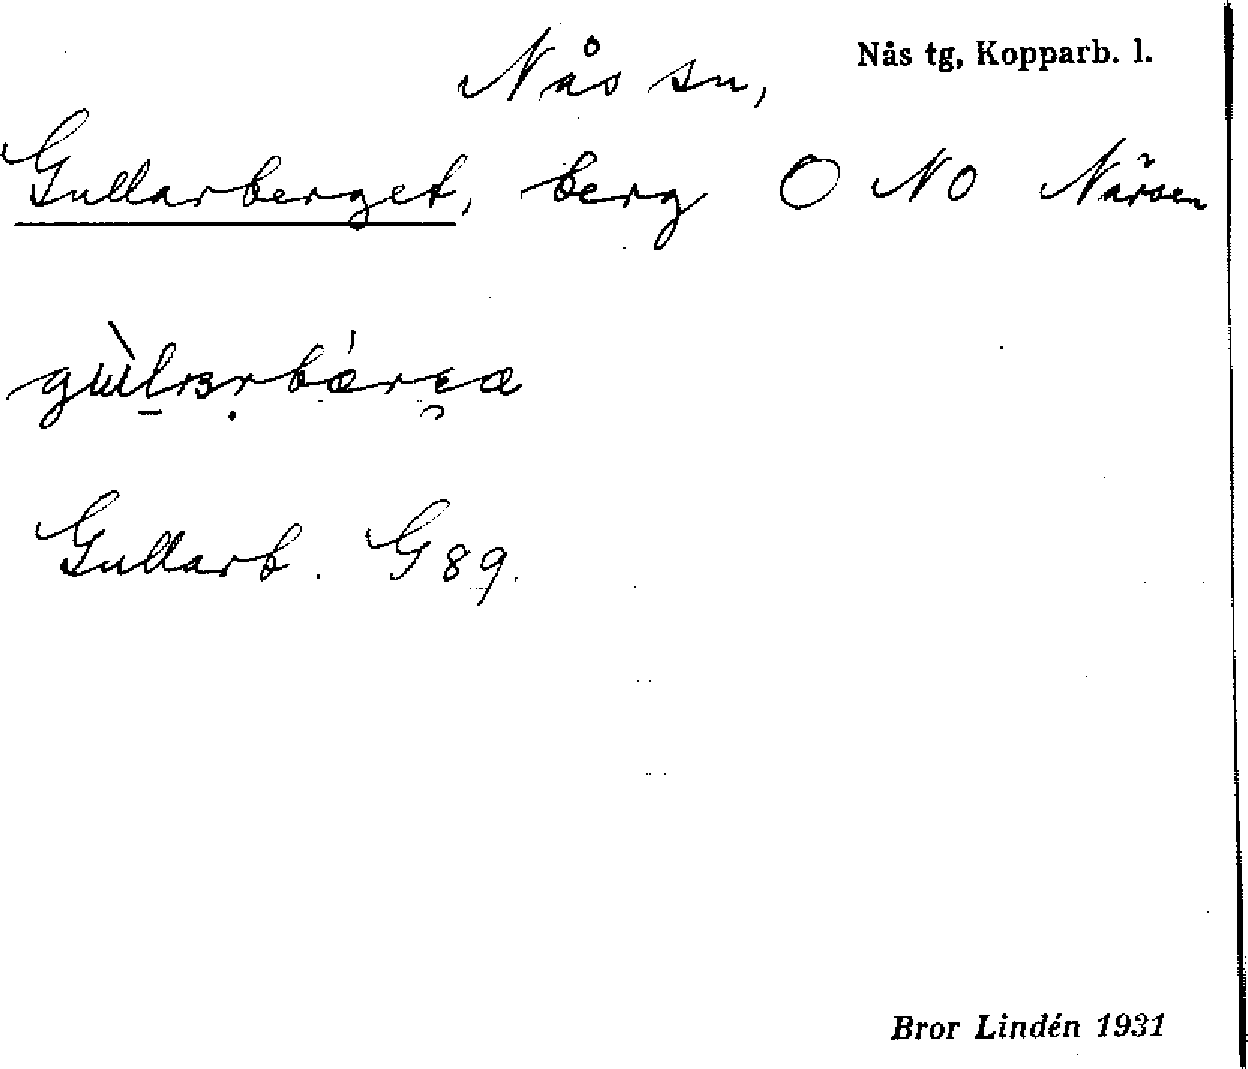 Nås sn, Nås tg, Kopparb. l.
Gullarberget, berg O NO Närsen
Gullarb. G 89.
Bror Lindén 1931